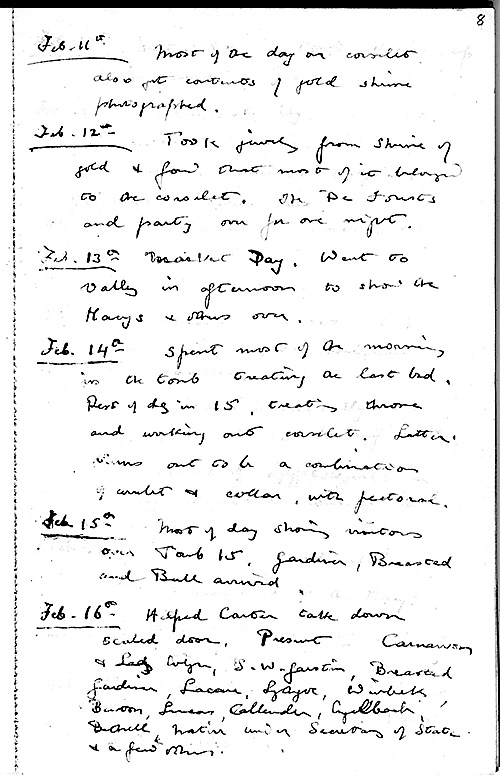 8
Feb. 11th Most of the day on corselet
also got contents of gold shrine
photographed.
Feb. 12th Took jewels from shrine of
gold & found that most of it belonged
to the corselet. The De Forests
and party over for one night.
Feb. 13th Market Day. Went to
Valley in afternoon to show the
Harrys & others over.
Feb. 14th Spent most of the morning
in the tomb treating the last bed.
Rest of day in 15, treating throne
and working out corselet. Latter
turns out to be a combination
of amulet & collar, with pectoral.
Feb 15th Most of day showing visitors
over Tomb 15. Gardiner, Breasted
and Bull arrived
Feb. 16th Helped Carter take down
sealed door. Present Carnarvon
& Lady Evelyn, S. W. Garstin, Breasted
Gardiner, Lacau, Winlock,
Burton, Lucas, Callender, Engelbach,
Bethell, native under Secretary of State
& a few others.